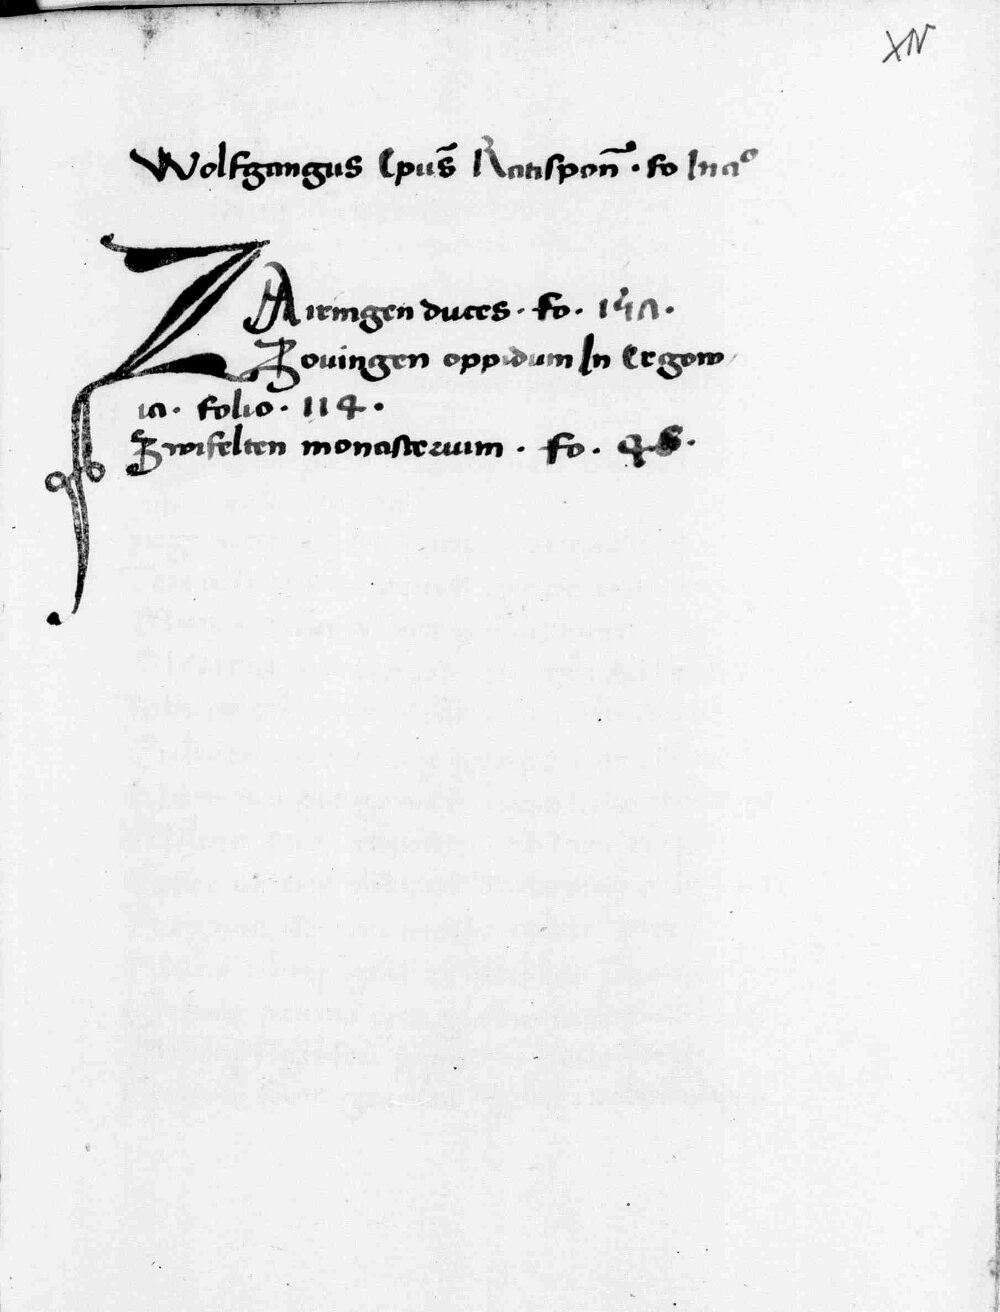 XIV
Wolfgangus Epus̄ Ratispon̄ · fo
ZAiringen duces · fo ·
Zovingen oppidum In Ergow
ia · folio · 114 ·
Zwifelten monasterium · fo · 46 ·